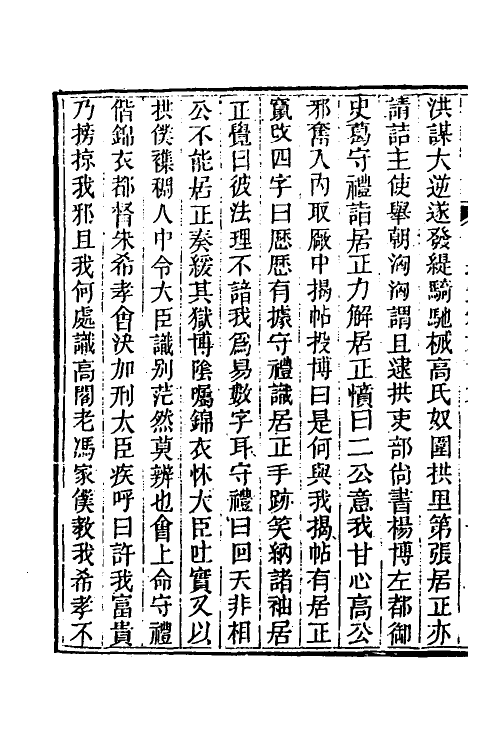 洪謀大逆遂發緹騎馳械高氏奴圍拱里第張居正亦
請詰主使舉朝洶洶謂且逮拱吏部尚書楊博左都御
史葛守禮詣居正力解居正憤曰二公意我甘心高公
邪奮入內取廠中揭帖投博曰是何與我揭帖有居正
竄改四字曰歷歷有據守禮識居正手跡笑納諸袖居
正覺曰彼法理不諳我為易數字耳守禮曰回天非相
公不能居正奏緩其獄博陰囑錦衣怵大臣吐實又以
拱僕襍稠人中令大臣識別茫然莫辨也會上命守禮
偕錦衣都督朱希孝會決加刑大臣疾呼曰許我富貴
乃搒掠我邪且我何處識高閣老馮家僕教我希孝不